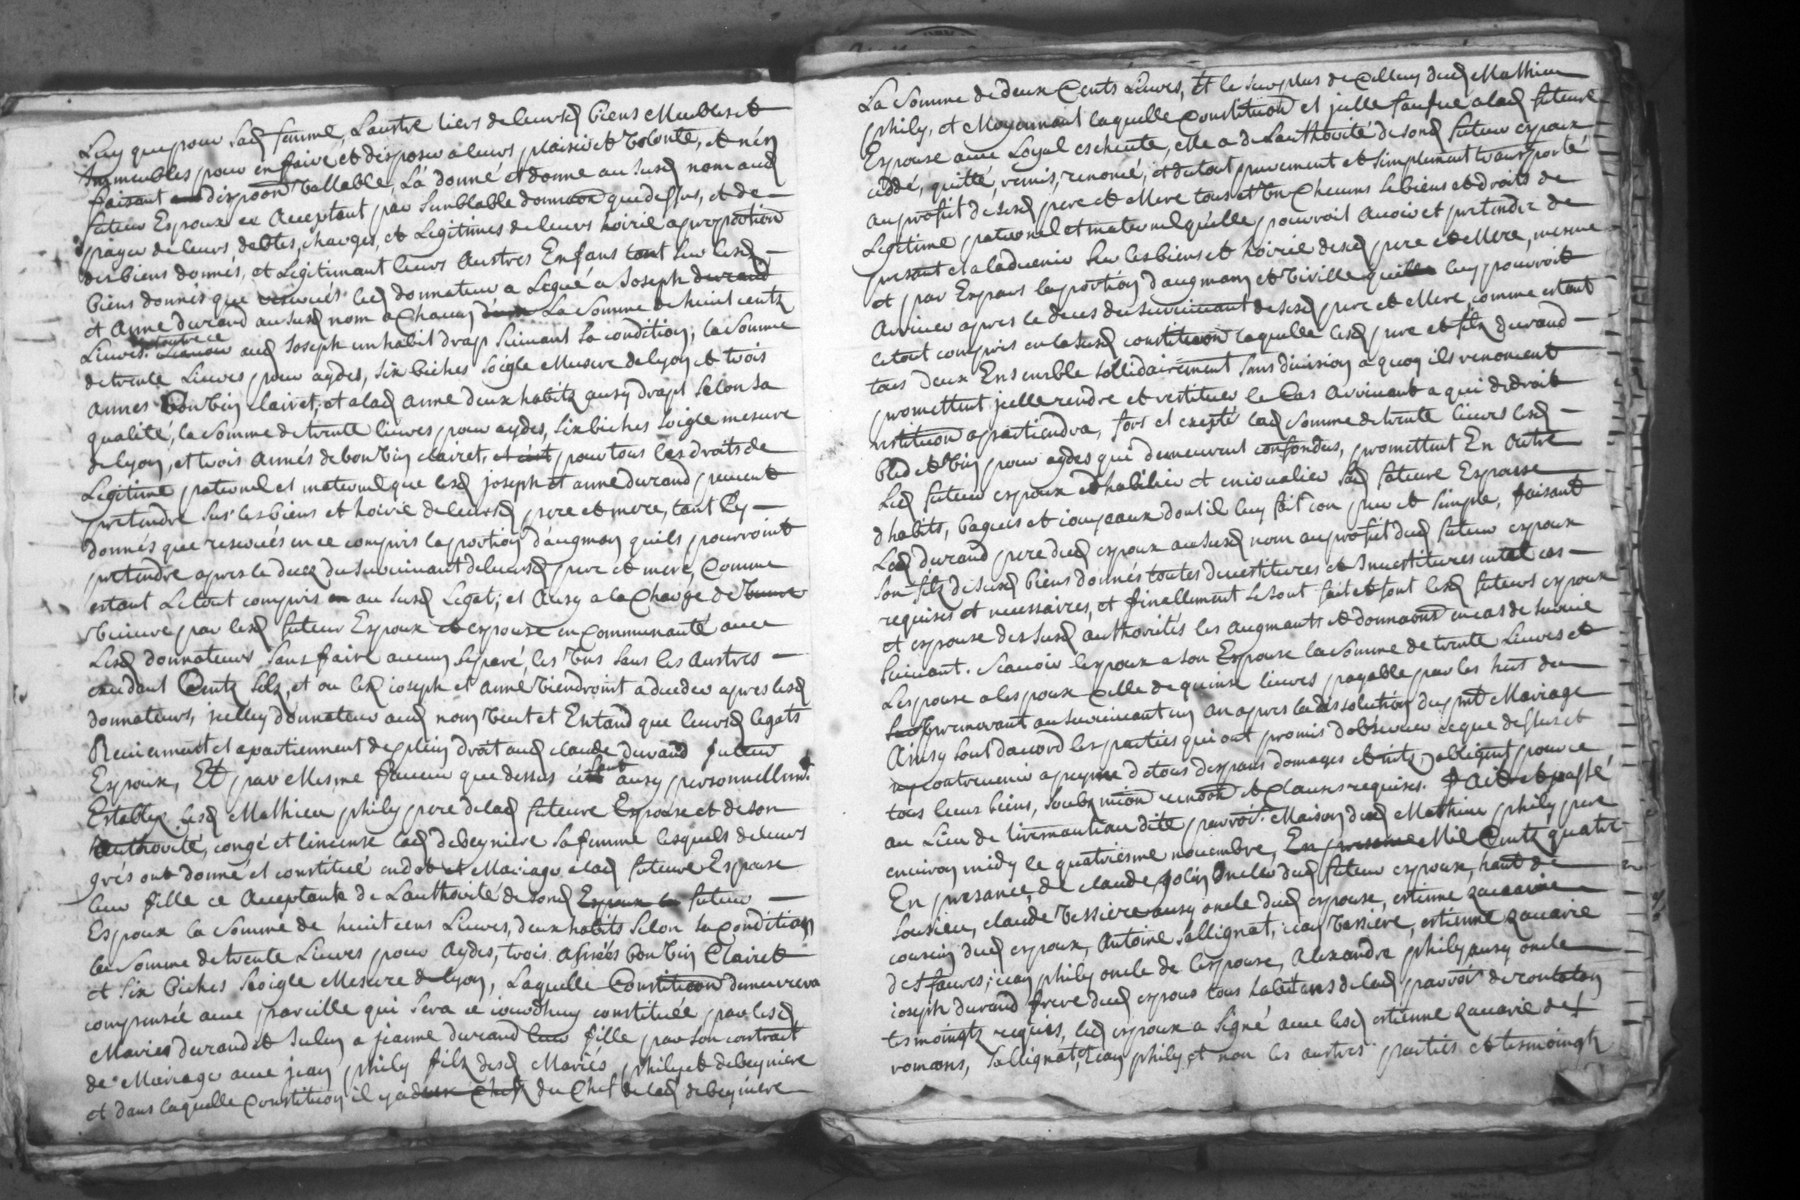 Luy que pour lad femme, Laustre tiers de leursd biens Meubles et
Immeubles pour en faire et disposer a leurs plaisir et volonté, et nen
faisant dispōon vallable, La donné et donne au susd nom aud
futeur Espoux ce Acceptant par semblable donnaōn que dessus, et de
payer de leurs debtes, charges, et Legitimes de leurs hoirie a proportion
des biens donnés, et Legitimant leurs Austres Enfans tant sur lesd
biens donnés que reservés led donnateur a Legué a Joseph durand
et Anne durand au susd nom a Chacun La Somme de huict centz
Lieuvres outre ce aud Joseph un habit drap suivant sa condition, la Somme
de trente Lieuvres pour aydes, six biches soigle Mesure de lyon et trois
Annes bon vin clairet, et a lad Anne deux habitz aussy draps selon sa
qualité, la somme de trente lieuvres pour aydes, six biches soigle mesure
de lyon, et trois annés de bon vin clairet, pour tous les droits de
Legitime paternel et maternel que lesd joseph et anne durand peuvent
pretendre sus les biens et hoirie de leursd pere et mere, tant cy
donnés que reservés en ce compris la portion d'augman qu'ils pourroint
pretendre apres le decez du survivant de leursd pere et mere, Comme
estant Le tout compris au susd Legat; et Aussy a la Charge de
vivre par lesd futeur Espoux et espouse en communauté avec
Lesd donnateurs sans faire aucun separé, les uns sans les Austres
excedant Centz solz, et ou lesd joseph et Anne viendroint a deceder apres lesd
donnateurs, jcelluy donnateur aud nom veut et Entand que leursd legats
Reviennent et apartiennent de plein droit aud claude durand futeur
Espoux, Et par Mesme faveur que dessus sont aussy personnellemt
Establys lesd Mathieu phily pere de lad futeure Espouse et de son
Authorité, congé et lincense lad debeyniere sa femme lesquels de leurs
grés ont donné et constitué en dot et Mariage a lad futeure Espouse
leur fille ce Acceptante de L'authorité de sond futeur
Espoux la Somme de huict cens Lieuvres, deux habits selon sa condition
la Somme de trente Lieuvres pour Aydes, trois Asnées bon vin Clairet
et six biches soigle Mesure de lyon, Laquelle Constituōn demeurera
compensée avec pareille qui sera ce jourdhuy constituée par lesd
Mariés durand et Julin a jeanne durand leur fille par son contract
de Mariage avec jean phily filz desd Mariés phily et debeyniere
et dans laquelle Constitution il y a du Chef de lad debeyniere
La Somme de deux Cents Lieuvres, Et le surplus de Celluy dud Mathieu
phily, et Moyennant laquelle Constituōn et jcelle faufue a lad futeure
Espouse avec Loyal escheute, elle a de L'authorité de sond futeur espoux
ceddé, quitté, remis, renoncé, et de tout purement et simplement transporté
au profit de sesd pere et Mere tous et un Checuns les biens et droits de
Legitime paternel et maternel qu'elle pourroit Avoir et pretendre de
present et a ladvenir sur les biens et hoirie desd pere et Mere, mesme
et par Expres la portion d'augman et virille luy pourroit
Arriver apres le deces du survivant de sesd pere et Mere, comme estant
le tout compris en la susd constituōn laquelle lesd pere et filz durand
tous deux Ensemble sollidairement sans division a quoy ils renoncent
promettent jcelle rendre et restituer le Cas Arrivant a qui de droit
restituōn apartiendra, fors et exepté lad Somme de trente lieuvres lesd
bled et vin pour aydes qui demeurent confondus, promettent En Outre
Led futeur espoux d'habilier et enjoualier sad futeure Espouse
d'habits, bagues et joueyaux dont il luy fait don pur et simple, faisant
Led durand pere dud espoux au susd nom au profit dud futeur espoux
son filz desusd biens donnés toutes devestitures et Investitures en tel cas
requises et necessaires, et finallement se sont fait et font lesd futeurs espoux
et espouse des susd authorités les augmants et donnaōns en cas de survie
suivant. Scavoir lespoux a son Espouse la Somme de trente Lieuvres et
Lespouse a lespoux Celle de quinze lieuvres payable par les hers du
premourant au survivant un An apres la dissolution du pnt Mariage
Ainsy sont daccord les parties qui ont promis d'observer ce que dessus et
ny contrevenir a peyne de tous despans domages obligent pour ce
tous leurs biens, soubz et clauses requises. Fait et passé
au Lieu de dite parroi: Maison dud Mathieu phily pere
environ midy le quatriesme novembre, Mil Centz quatre
En presance, de claude jolin Oncle dud futeur espoux, haut de
Sousieu, claude vessiere aussy oncle dud espoux, estienne zacarie
cousin dud espoux, Antoine sallignat, jean vassiere, estienne zacarie
de st Faures; jean phily oncle de lespouse, Alexandre phily aussy oncle
joseph durand frere dud espoux tous habitans de lad parroi: de rontalon
tesmoingtz requis, led espoux a signé avec lesd estienne zacarie de st
romans, Sallignat, jean phily, et non les austres parties et tesmoingtz